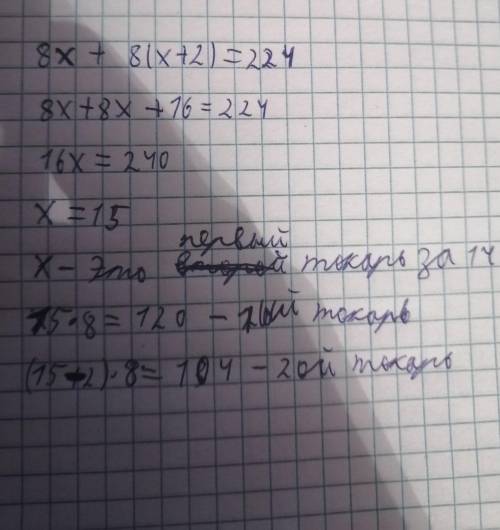 8x + 8(x+2)=224
8x+8x+16=224
16x=240
x=15
первый
x - это токарь за 1ч
15·8=120 - 1ый токарь
(15-2)·8=104 - 2ой токарь